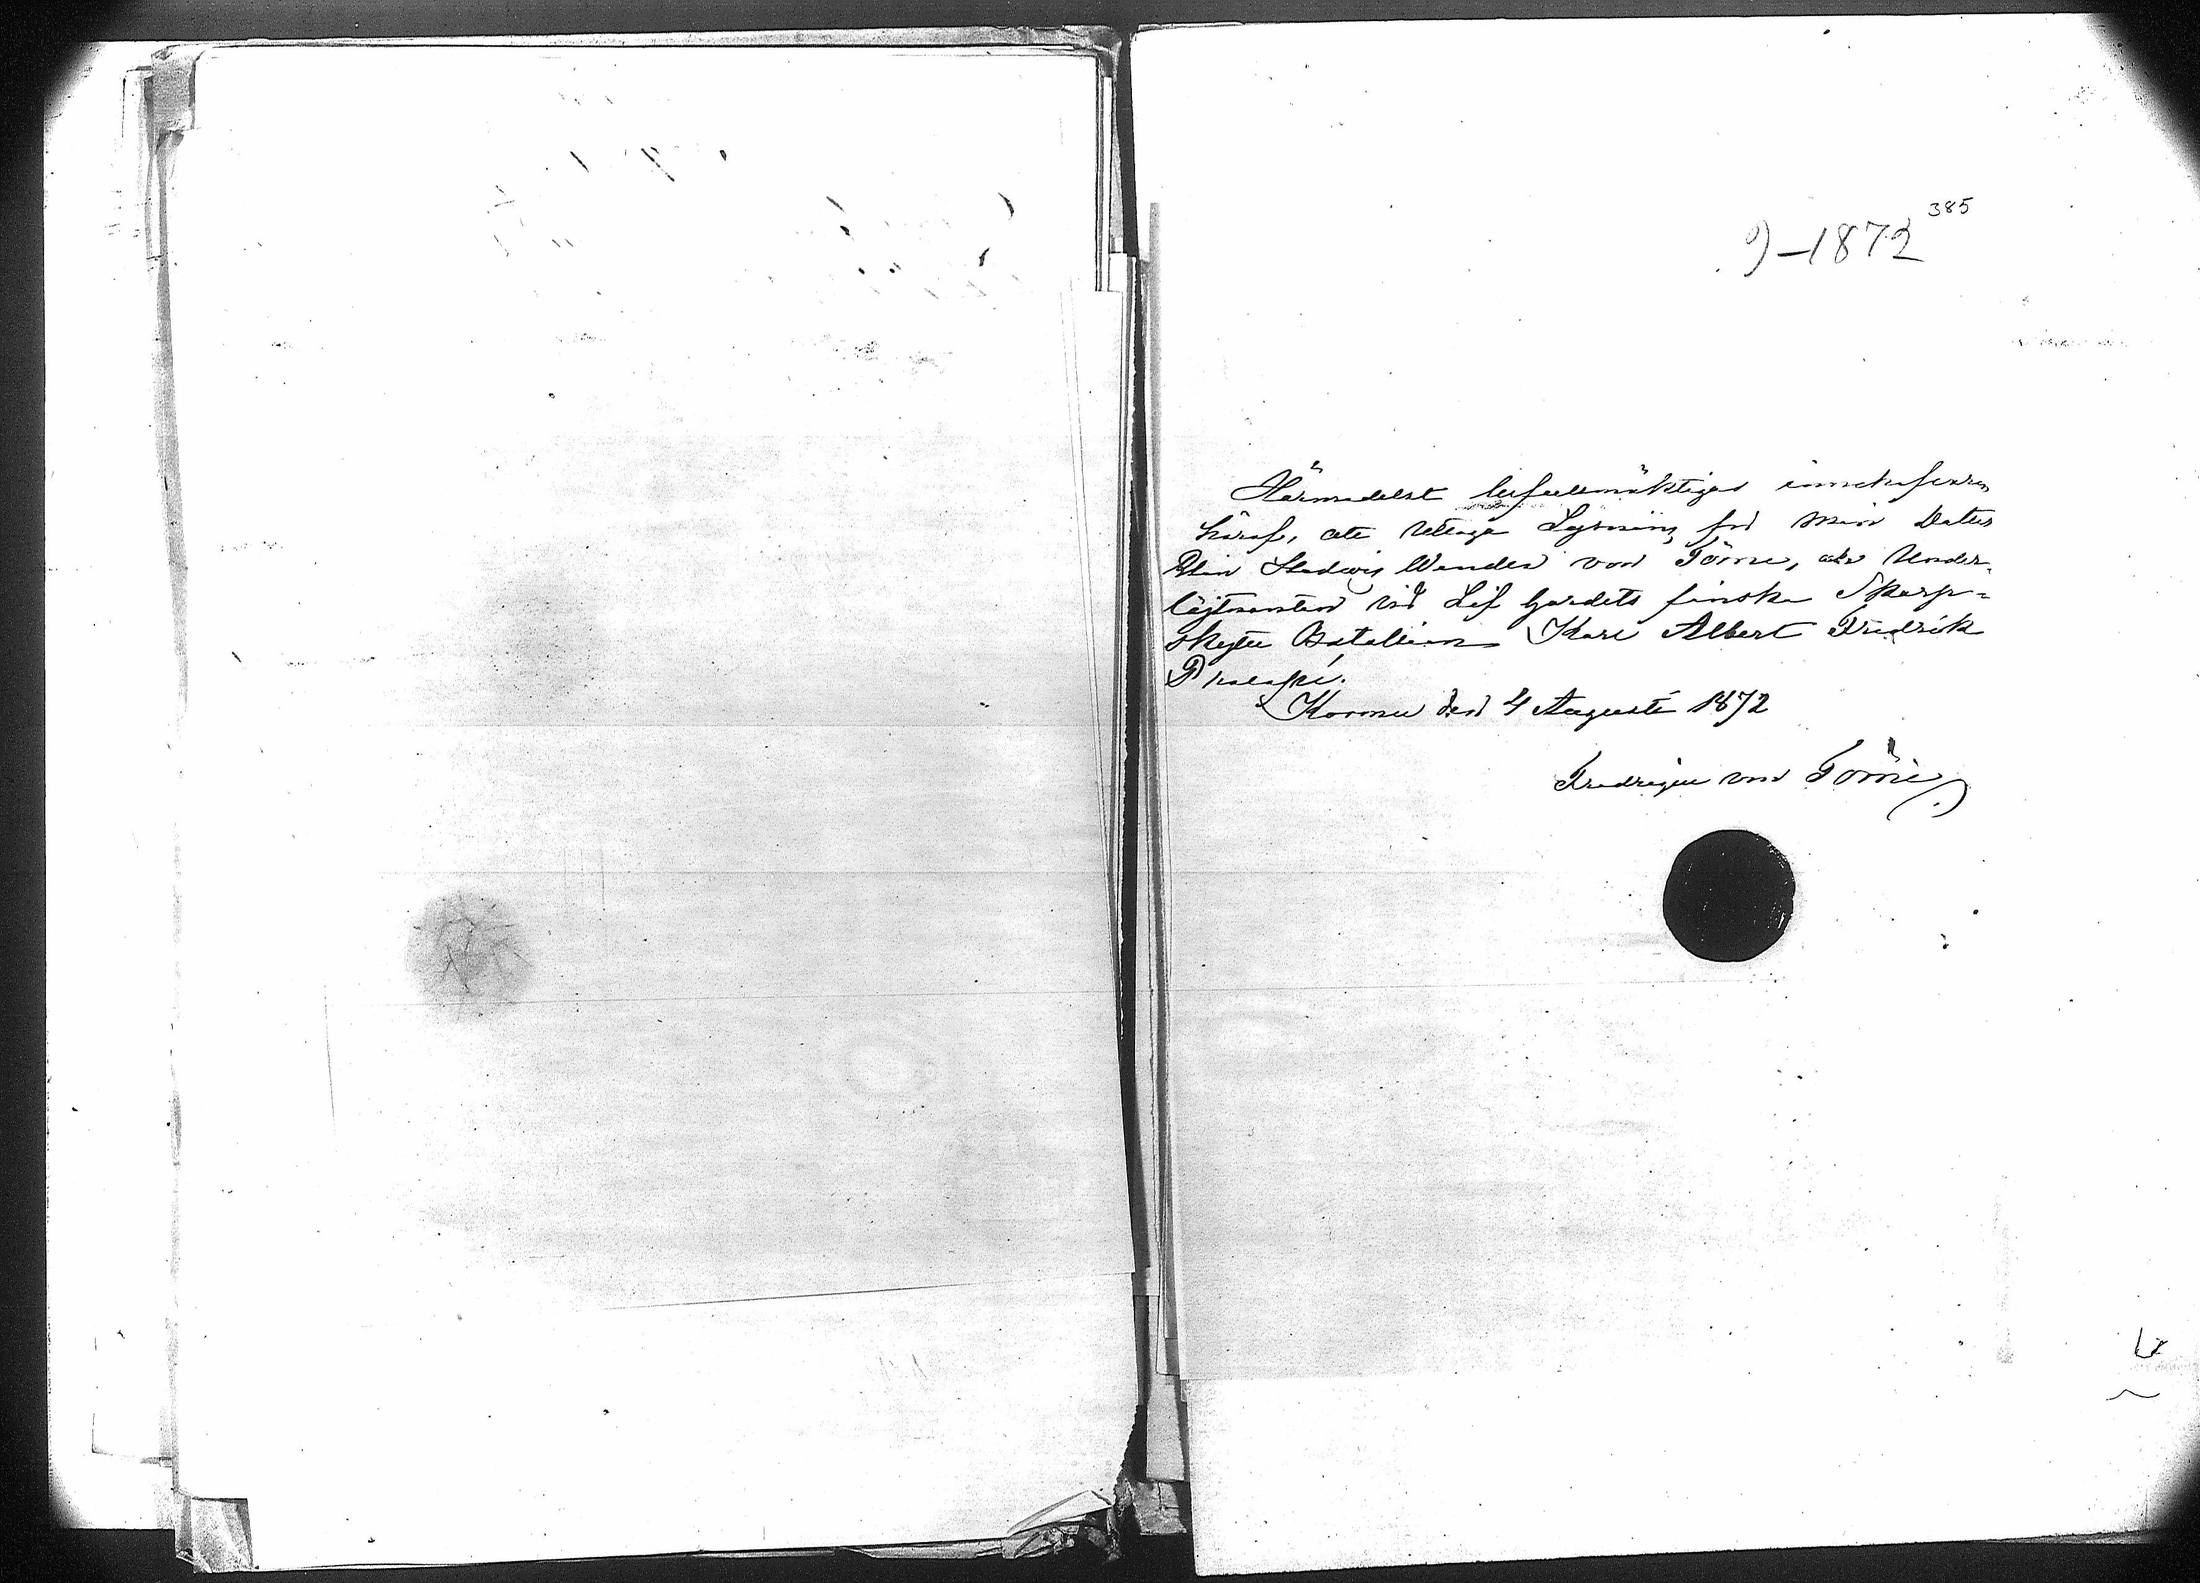 385
9-1872
Härmedelst befullmäktigas innehafvaren
häraf, att uttaga Lysning för min Dotter
Elin Hedvig Wendla von Törne, och Under-
löjtnanten vid Lif Gardets finska Skarp-
skytte Bataillon Karl Albert Fredrik
Koomu den 4 Augusti 1872
Fredrique von Törne